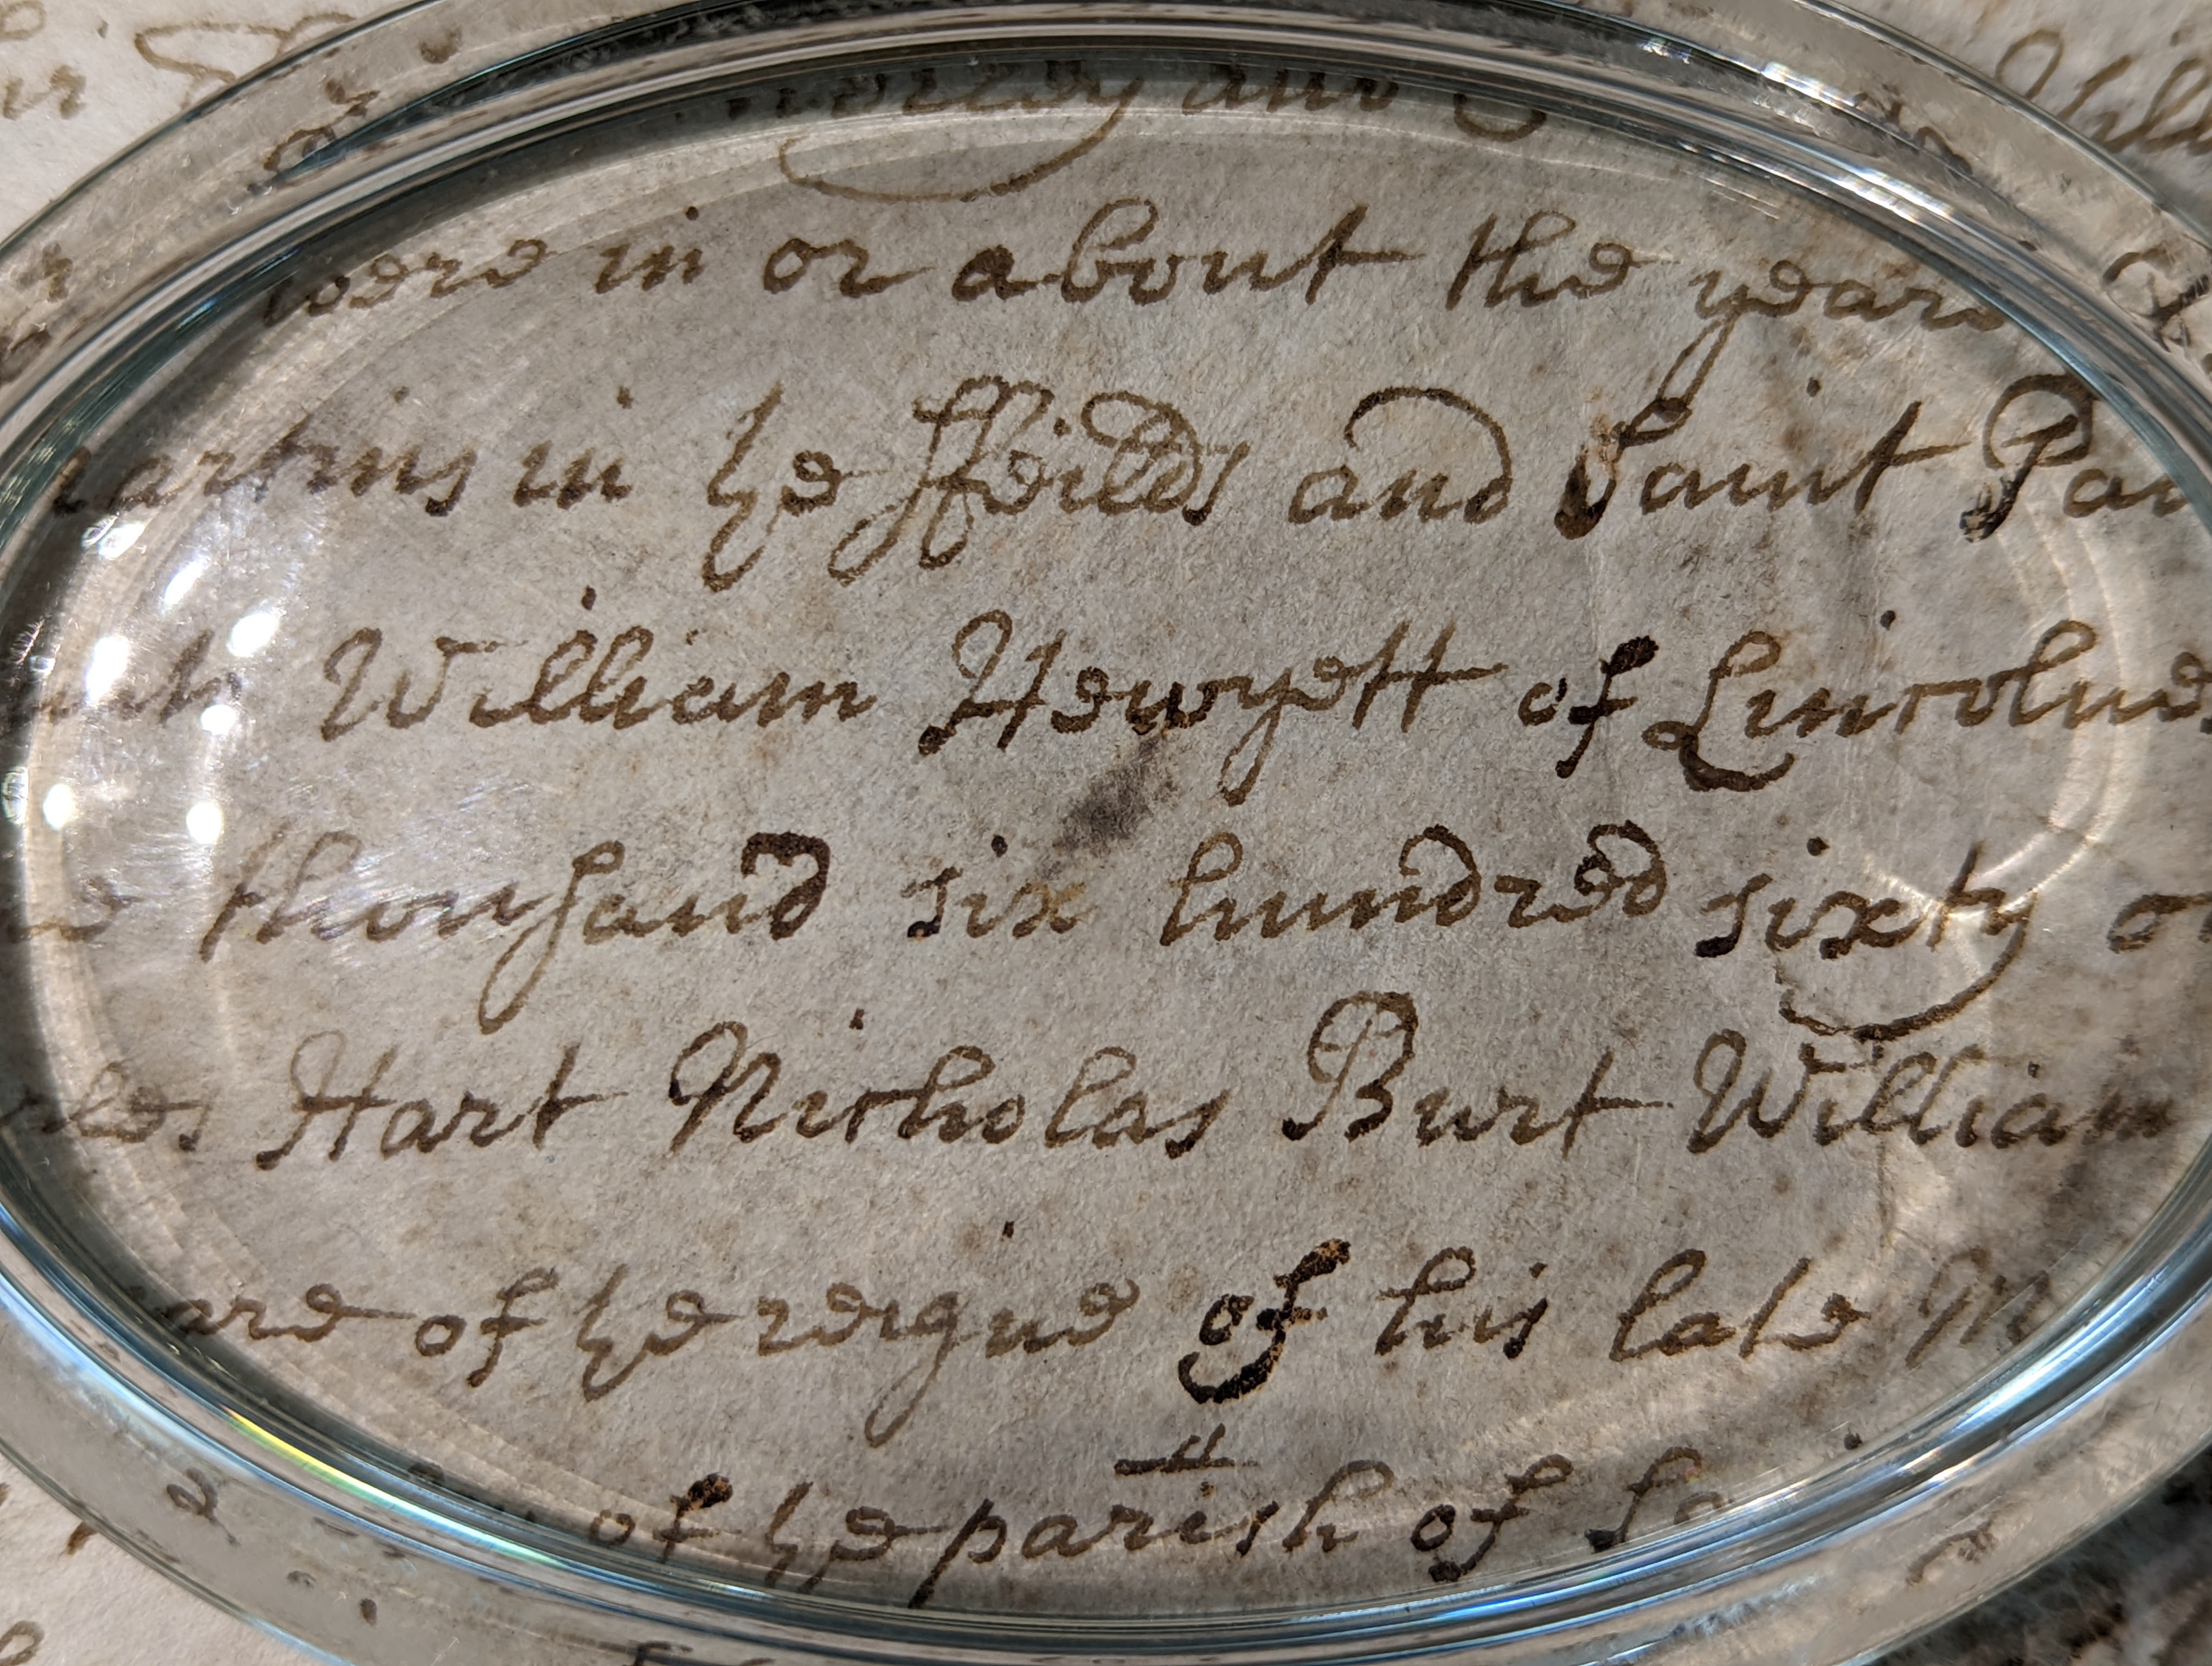 were in or about the yeare
martins in the ffeilds and Saint Pau
William Hewyett of Lincolnes
thousand six hundred sixty o
rles Hart Nicholas Burt William
eare of the reigne of his late M
of the parish of Sa